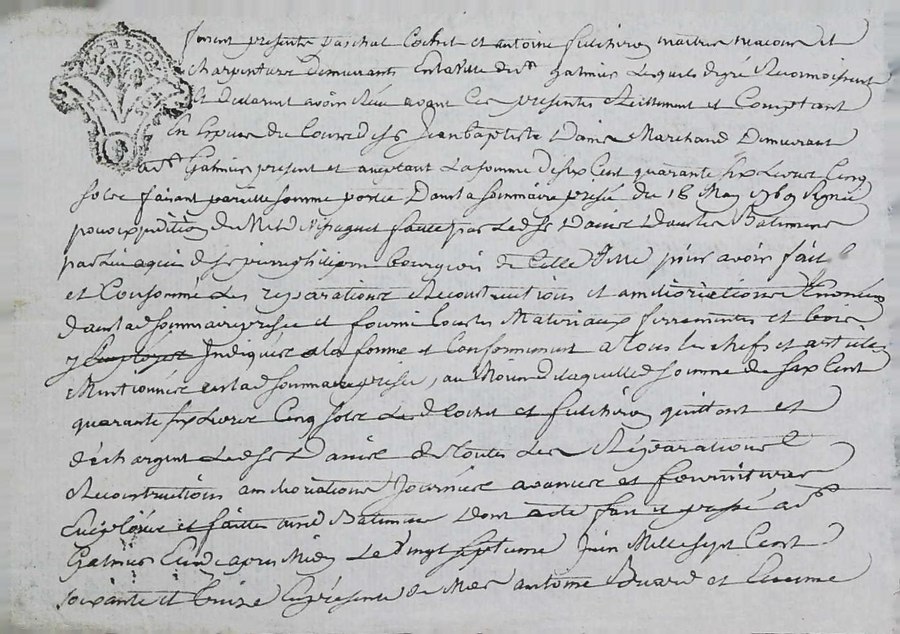 furent presents paschal Cochet et antoine fulchiron maitres macons et
charpentiers Demeurants En la Ville de st Galmier Lesquels de gré Reconnoissent
Et Declarent avoir Réeu avant Ces presentes Réellement et Comptant
En Especes du Cours de sr Jean baptiste Daniere Marchand Demeurant
a st Galmier present et aceptant La somme de six Cent quarante six Livres Cinq
sols faisant pareille somme portée Dans la sommaire prisée du 18 May 1769 signée
pour expedition faitte par Led sr Daniere Dans les Batiments
par Lui aquis de sr bourgeois de Cette Ville pour avoir fait
et Consommé Les reparations Reconstructions et ameliorations Enoncées
Dans lad sommaire prisée et fourni tous les Materiaux ferrements et bois
y Employés Indiqués a la forme et Conformement a tous les chefs et articles
Mentionnés en lad sommaire prisée, au Moyen de laquelle d somme de six Cent
quarante six Livres Cinq sols Lesd Cochet et fulchiron quittent et
déchargent Led sr Daniere de toutes Les Réparations
Reconstructions ameliorations Journées avances et fournitures
Emploiées et faittes aud Batiments Dont acte fait et passé a st
Galmier Etude apres Midy Le Vingt septieme Juin Mille sept Cent
soixante et treize En presence de Mes antoine et Etienne